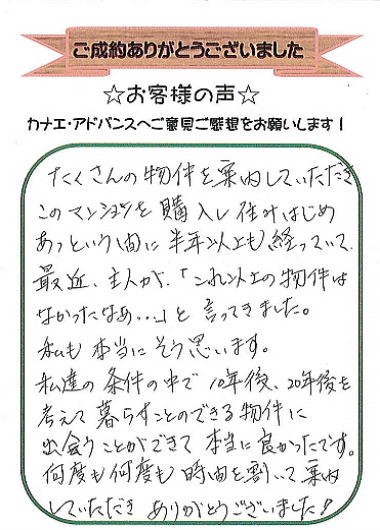 ご成約ありがとうございました
☆お客様の声☆
カナエ・アドバンスへご意見ご感想をお願いします！
たくさんの物件を案内していただき
このマンションを購入し住みはじめ
あっという間に半年以上も経っていて、
最近、主人が、「これ以上の物件は
なかったなぁ…」と言ってきました。
私も本当にそう思います。
私達の条件の中で10年後、20年後を
考えて暮らすことのできる物件に
出会うことができて本当に良かったです。
何度も何度も時間を割いて案内
していただきありがとうございました！